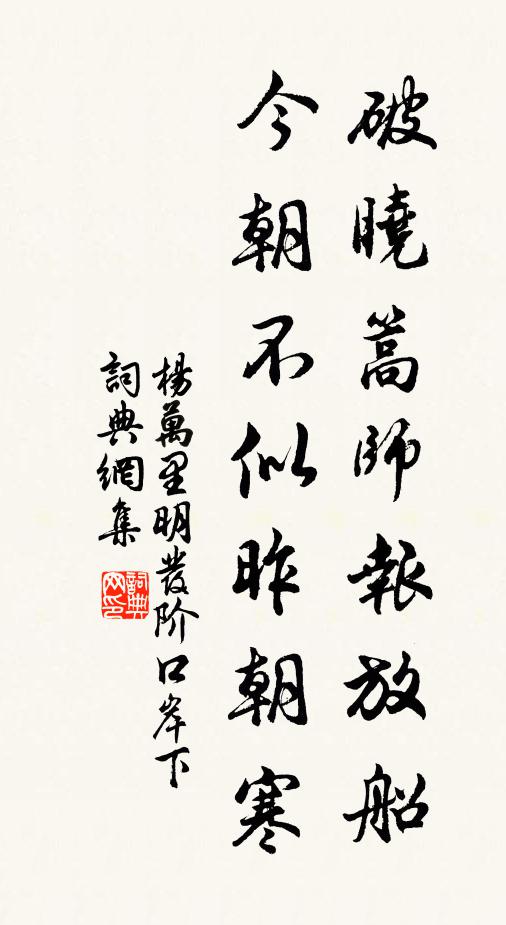 破曉篙師報放船
今朝不似昨朝寒
楊萬里明發阶口岸下
詞典網集
詞典
网印